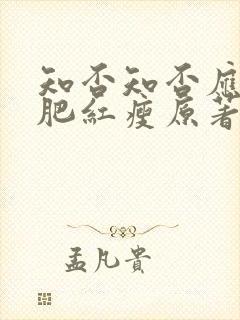 知否知否應
肥紅瘦原著
孟凡貴